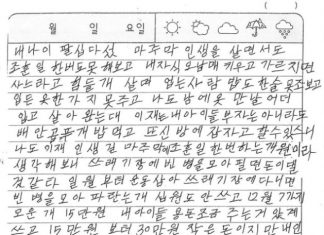 (
월 일 요일
내나이 팔십다섯 마주막 인생을 살면서도
조훈일 한버도못 해보고 내자식 오남매 키우고 가르치면
사느라고 힘들게 살며 업는사람 밥도 한술 못주보고
입든 옷한가지 못주고 나도 남에옷 만날 어더
입고 살아 왔는대 이재는내아이들 부자는아니라도
배안곱푸게 밥먹고 또신 방에 잠자고 할수있스니
나도 이재 인생길 마주막에조훈일 한번하는게원이라
생각 해보니 쓰래기장에빈 병을모아 필면 돈이댈
것갓다 일월부터 운동삼아 쓰래기장에다니면
빈 병을모아 파란는개 십원도 안쓰고 12월 7가재
모운개 15만원 내아이들 용돈조금 주는거 았게
쓰고 15만원 부터 30만원 작은돈이지만 내인